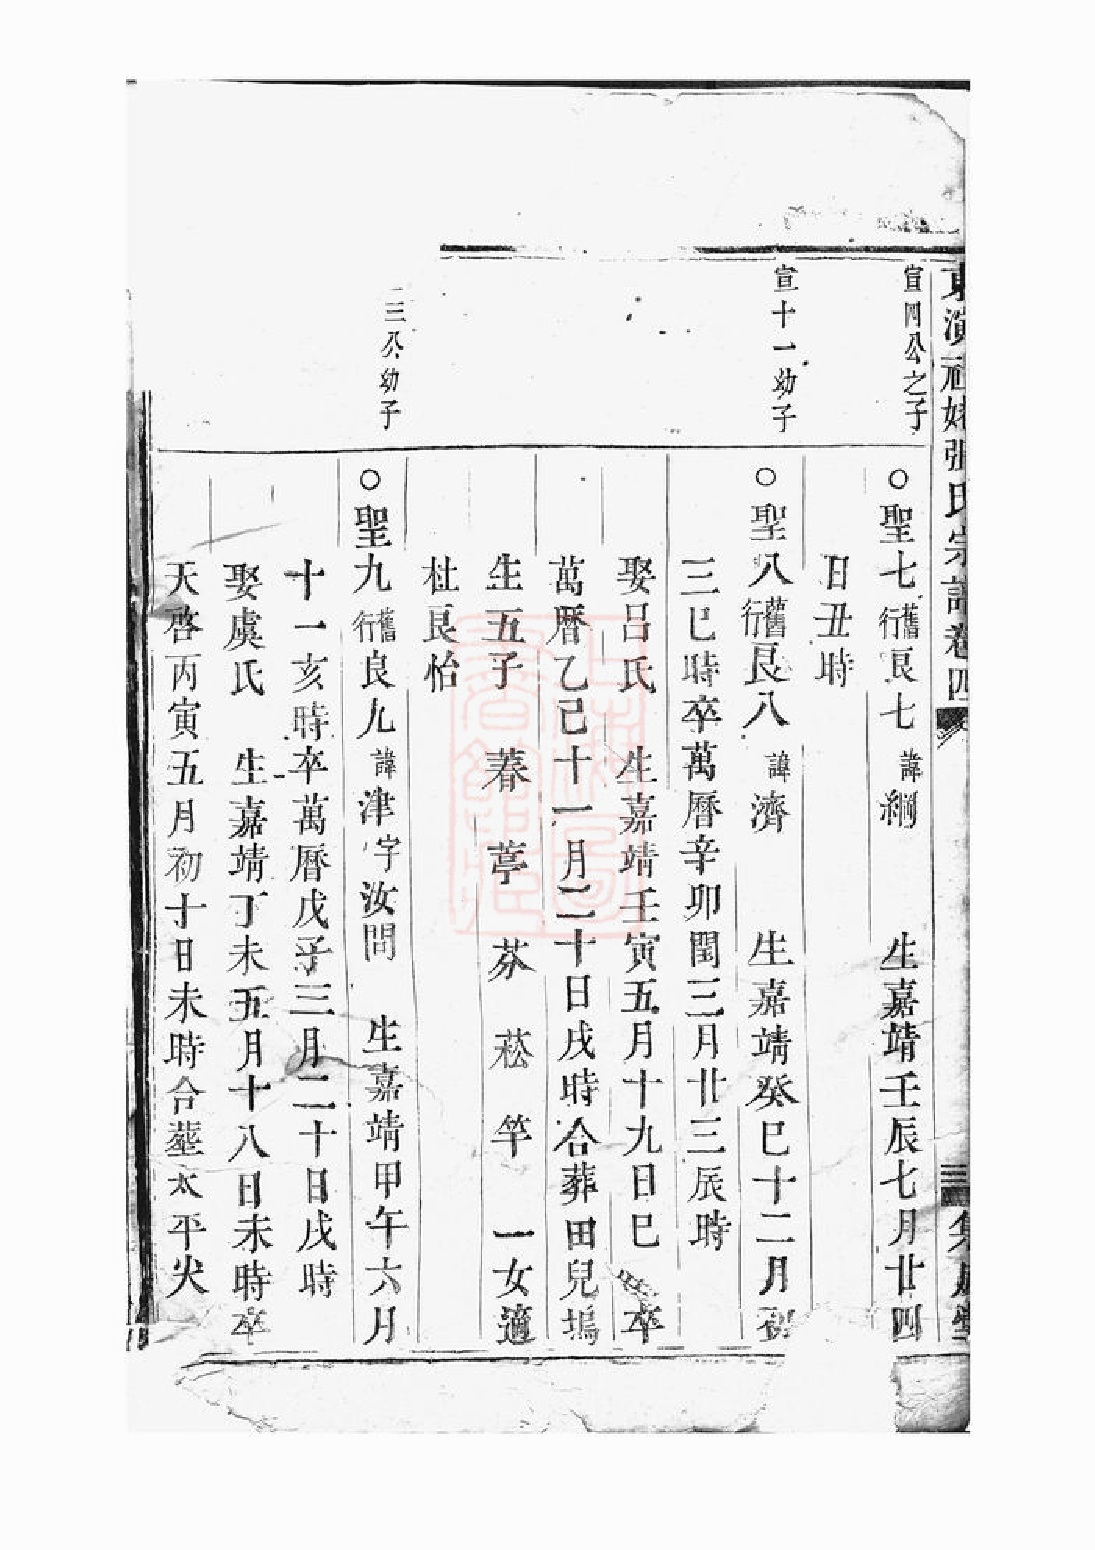 東演祠姝張氏宗譜卷四
三
集慶堂
宣四公之子
○聖七舊行良七諱綱 生嘉靖壬辰七月廿四
日丑時
宣十一幼子
○聖八舊行良八諱濟 生嘉靖癸巳十二月初
三巳時卒萬曆辛卯閏三月廿三辰時
娶呂氏 生嘉靖壬寅五月十九日巳時卒
萬曆乙己十一月二十日戌時合葬田兒塢
生五子 萶 葶 芬 菘 竿 一女適
杜良怡
三公幼子
○聖九舊行良九諱津字汝問 生嘉靖甲午六月
十一亥時卒萬曆戊子三月二十日戌時
娶虞氏 生嘉靖丁未五月十八日未時卒
天啓丙寅五月初十日未時合塟太平尖